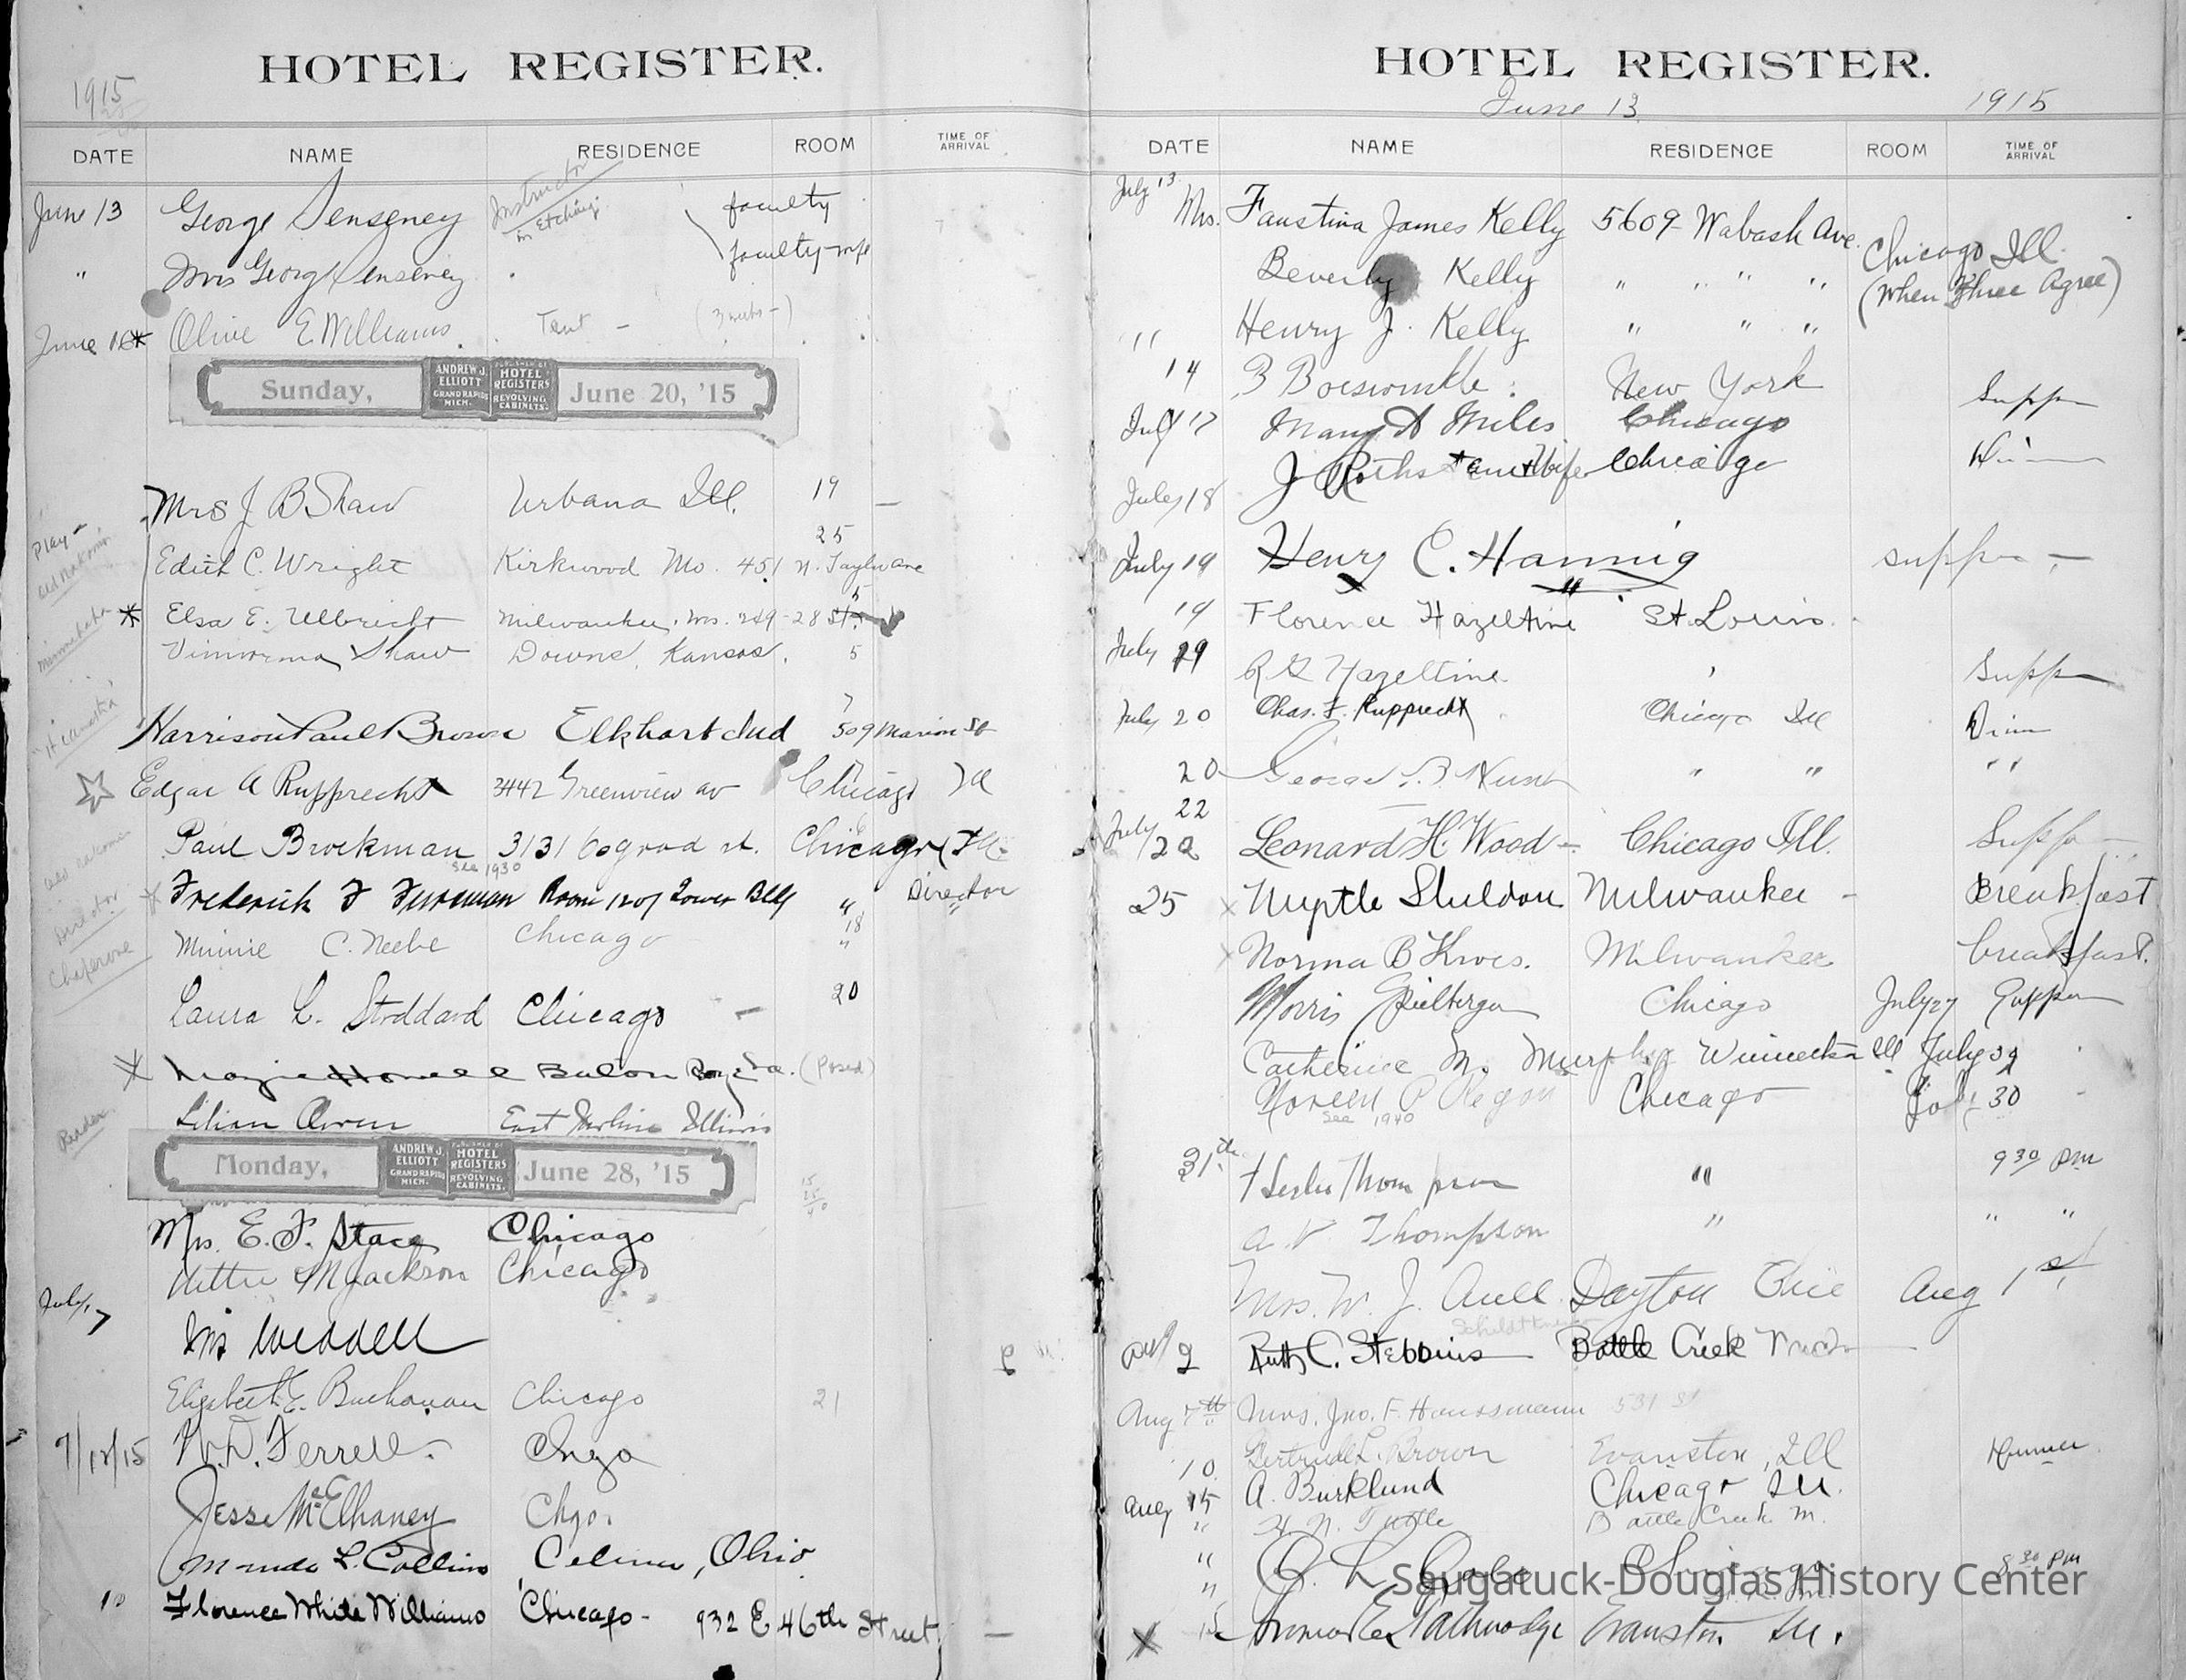 HOTEL REGISTER.
1915
DATE NAME RESIDENCE ROOM TIME OF ARRIVAL
June 13 George Senseney Instructor in Etching faculty
" Mrs George Senseney faculty-wife
June 18 * Olive E Williams. Tent - (3 weeks -)
Sunday, ANDREW J. ELLIOTT GRAND RAPIDS MICH. PUBLISHER OF HOTEL REGISTERS REVOLVING CABINETS. June 20, '15
Mrs J B Shaw Urbana Ill. 19 -
25
Play-
Edith C. Wright Kirkwood Mo. 451 N. Taylor Ave
Minnehaha * Elsa E. Ulbricht Milwaukee, Wis. 249-28 St.
Shaw Downs, Kansas. 5
"Hiawatha"
7
Harrison Paul Brown Elkhart Ind 509 Marion St
Edgar A Rupprecht 3442 Greenview av Chicago Ill
Paul Brockman 3131 Osgood st. Chicago Ill.
See 1930
Director Frederick F Fursman Room 1207 Tower Bldg " Director
18
Chaperone Minnie C. Neebe Chicago "
Laura L. Stoddard Chicago - 20
Mazie Howell Baton Rouge La. (Posed)
Lilian Owen East Moline Illinois
Monday, ANDREW J. ELLIOTT GRAND RAPIDS MICH. PUBLISHER OF HOTEL REGISTERS REVOLVING CABINETS. June 28, '15
Mrs. E. F. Stacy Chicago
Nettie M Jackson Chicago
July 7
Iris Weddell
Elizabeth E. Buchanan Chicago 21
7/12/15 W. D. Ferrell. Chgo
Jesse McElhaney Chgo.
L. Collins Celina, Ohio
10 Florence White Williams Chicago - 932 E 46th Street -
HOTEL REGISTER.
June 13 1915
DATE NAME RESIDENCE ROOM TIME OF ARRIVAL
July 13 Mrs. Faustina James Kelly 5609 Wabash Ave. Chicago Ill.
Beverly Kelly " " " " (When Three Agree)
" Henry J. Kelly " " "
14 New York
July 17 Mary A Miles Chicago Supper
July 18 J and Wife Chicago Dinner
July 19 Henry C. Hannig supper -
19 Florence Hazeltine St. Louis.
July 19 Hazeltine Supper
July 20 Chas. F. Rupprecht Chicago Ill Dinner
20 George " " "
22
July 22 Leonard H. Wood - Chicago Ill. Supper
25 x Myrtle Sheldon Milwaukee - Breakfast
x Norma B Milwaukee breakfast.
Morris Spielberger Chicago July 27 Supper
Catherine M. Murphy Winnetka Ill July
Regan Chicago July 30
See 1940
31 Leslie Thompson " 9 30 pm
A V Thompson " " "
Mrs. W. J. Aull Dayton Ohio Aug 1st
2 Ruth C. Stebbins Battle Creek Mich
Aug 7th Mrs. Jno. F. Haussmann 531
10 Gertrude L. Brown Evanston, Ill Dinner
Aug 15 A. Burklund Chicago Ill.
" H N. Tuttle Battle Creek M.
" Chicago 8 30 pm
Saugatuck-Douglas History Center
x 15 Evanston Ill.